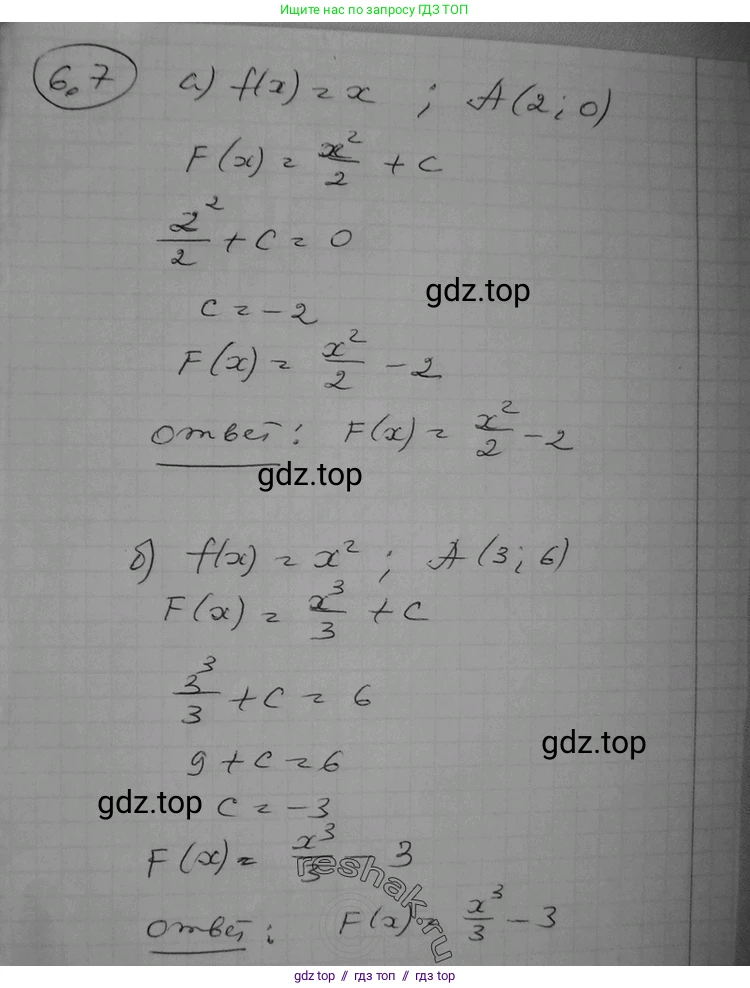 Ищите нас по запросу ГДЗ ТОП
6.7 а) f(x) = x ; A(2; 0)
F(x) = x²/2 + C
2²/2 + C = 0
gdz.top
C = -2
F(x) = x²/2 - 2
Ответ: F(x) = x²/2 - 2
gdz.top
б) f(x) = x² ; A(3; 6)
F(x) = x³/3 + C
3³/3 + C = 6
gdz.top
9 + C = 6
gdz.top
C = -3
F(x) = x³/3 - 3
reshak.ru
Ответ: F(x) = x³/3 - 3
gdz top // гдз топ // gdz top